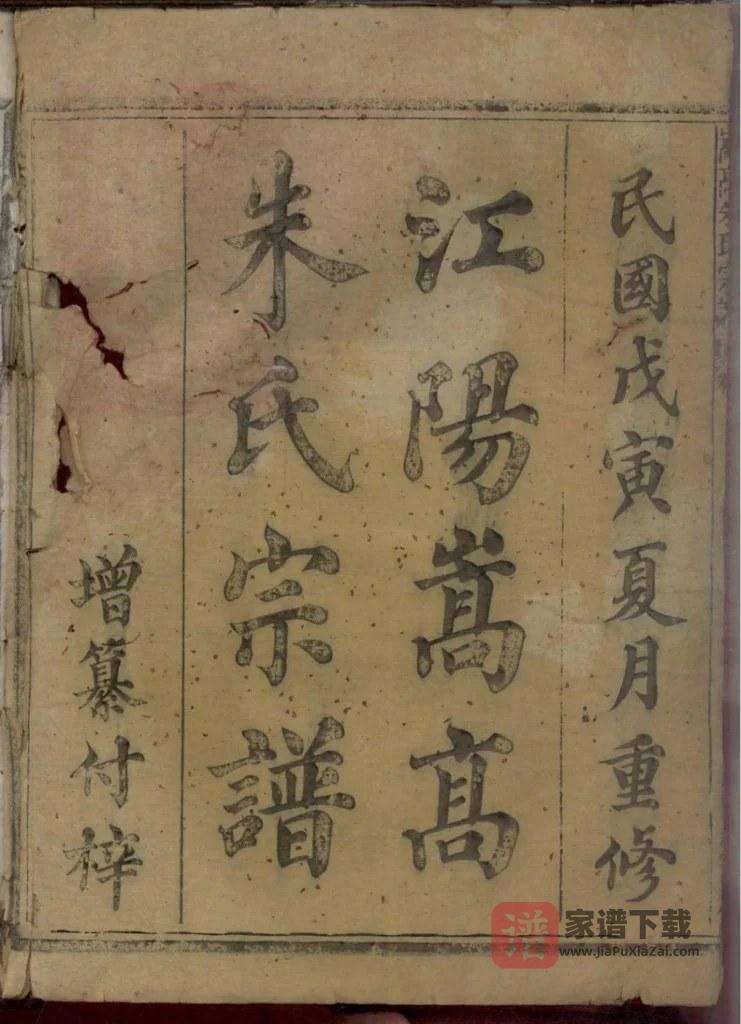 民國戊寅夏月重修
江陽嵩髙
朱氏宗譜
增纂付梓
谱 家谱下载
www.jiaPuXiaZai.com